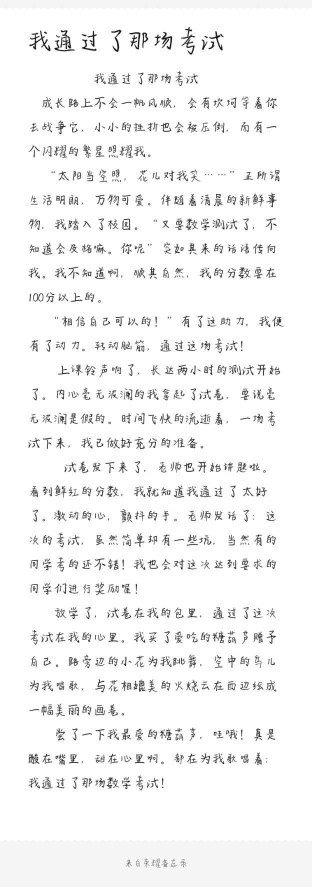 我通过了那场考试
我通过了那场考试
成长路上不会一帆风顺，会有坎坷等着你
去战争它，小小的挫折也会被压倒，而有一
个闪耀的繁星照耀我。
“太阳当空照，花儿对我笑……”正所谓
生活明朗，万物可爱。伴随着清晨的新鲜事
物，我踏入了校园。“又要数学测试了，不
知道会及格嘛。你呢”突如其来的话语传向
我。我不知道啊，顺其自然，我的分数要在
100分以上的。
“相信自己可以的！”有了这助力，我便
有了动力。转动脑筋，通过这场考试！
上课铃声响了，长达两小时的测试开始
了。内心毫无波澜的我拿起了试卷，要说毫
无波澜是假的。时间飞快的流逝着，一场考
试下来，我已做好充分的准备。
试卷发下来了，老师也开始讲题啦。
看到鲜红的分数，我就知道我通过了太好
了。激动的心，颤抖的手。老师发话了：这
次的考试，虽然简单却有一些坑，当然有的
同学考的还不错！我也会对这次达到要求的
同学们进行奖励喔！
放学了，试卷在我的包里，通过了这次
考试在我的心里。我买了爱吃的糖葫芦赠予
自己。路旁边的小花为我跳舞，空中的鸟儿
为我唱歌，与花相媲美的火烧云在西边绘成
一幅美丽的画卷。
尝了一下我最爱的糖葫芦，哇哦！真是
酸在嘴里，甜在心里啊。都在为我歌唱着：
我通过了那场数学考试！
来自荣耀备忘录